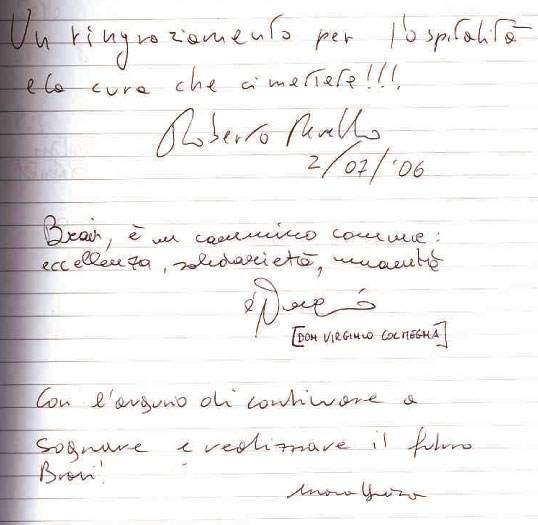 Un ringraziamento per l'ospitalità
e la cura che ci mettete!!!.
Roberto
2/07/'06
Bravi, è un cammino comune:
eccellenza, solidarietà, umanità
[DON VIRGINIO COLMEGNA]
Con l'augurio di continuare a
sognare e realizzare il futuro
Bravi!